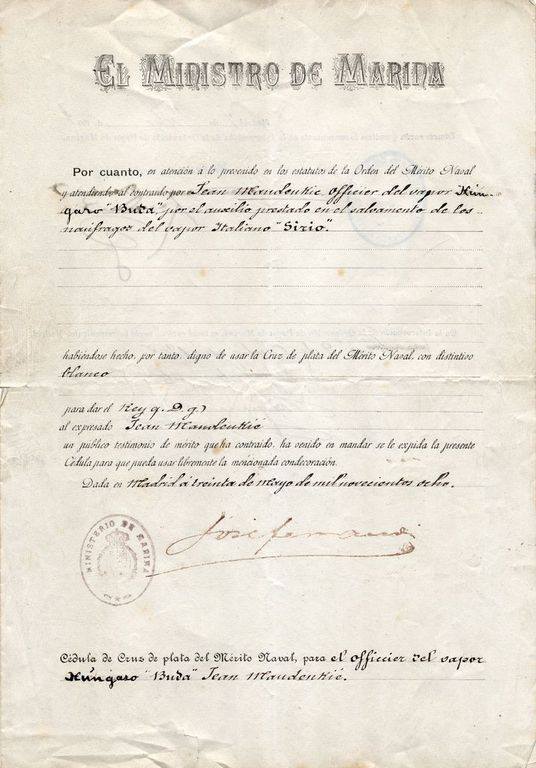 EL MINISTRO DE MARINA
Por cuanto, en atención á lo prevenido en los estatutos de la Orden del Mérito Naval
y atendiendo al contraido por Jean Maudenkié officier del vapor Hún-
garo "Buda" por el auxilio prestado en el salvamento de los
naúfragos del vapor Italiano "Sirio".
habiéndose hecho, por tanto, digno de usar la Cruz de plata del Mérito Naval, con distintivo
blanco
para dar el Rey q. D. g)
al expresado Jean Maudenkié
un público testimonio de mérito que ha contraido, ha venido en mandar se le expida la presente
Cédula para que pueda usar libremente la mencionada condecoración.
Dada en Madrid á treinta de Mayo de mil novecientos ocho.
José Ferrandi
MINISTERIO DE MARINA
Cédula de Cruz de plata del Mérito Naval, para el officier del vapor
Húngaro "Buda" Jean Maudenkié.